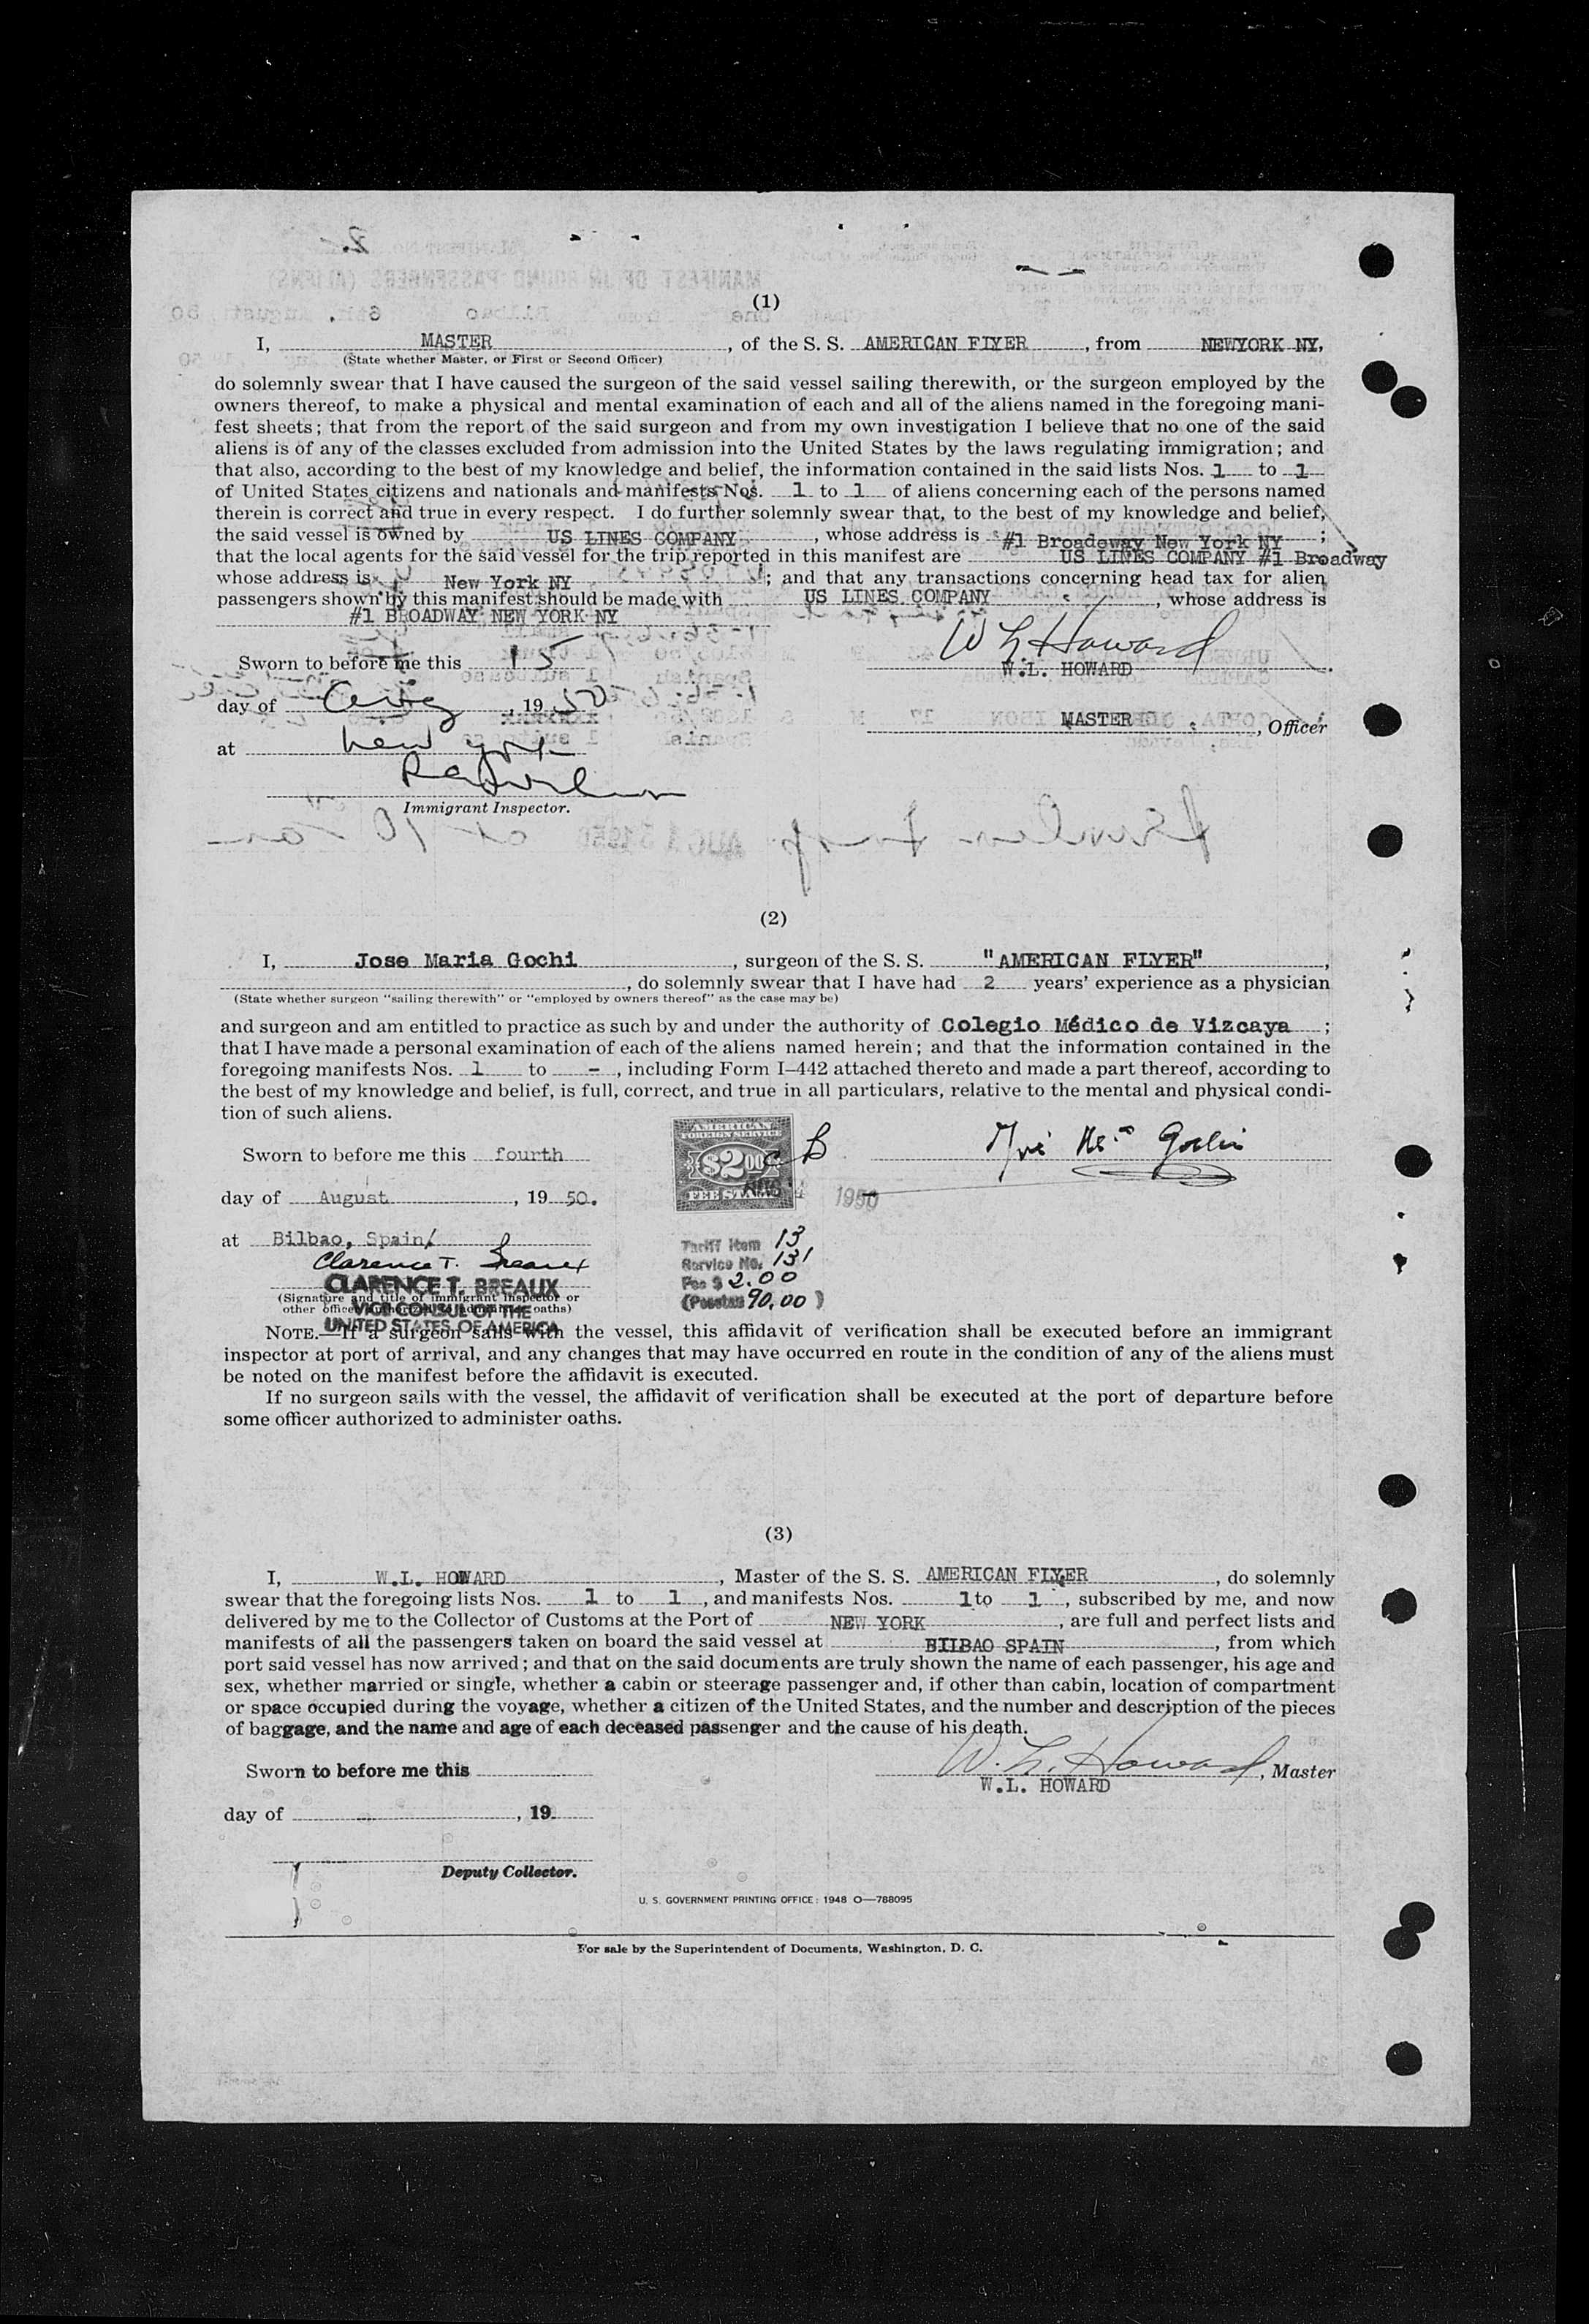 (1)
I, MASTER, of the S. S. AMERICAN FLYER, from NEWYORK NY,
(State whether Master, or First or Second Officer)
do solemnly swear that I have caused the surgeon of the said vessel sailing therewith, or the surgeon employed by the
owners thereof, to make a physical and mental examination of each and all of the aliens named in the foregoing mani-
fest sheets; that from the report of the said surgeon and from my own investigation I believe that no one of the said
aliens is of any of the classes excluded from admission into the United States by the laws regulating immigration; and
that also, according to the best of my knowledge and belief, the information contained in the said lists Nos. 1 to 1
of United States citizens and nationals and manifests Nos. 1 to 1 of aliens concerning each of the persons named
therein is correct and true in every respect. I do further solemnly swear that, to the best of my knowledge and belief,
the said vessel is owned by US LINES COMPANY, whose address is #1 Broadeway New York NY;
that the local agents for the said vessel for the trip reported in this manifest are US LINES COMPANY #1 Broadway
whose address is New York NY; and that any transactions concerning head tax for alien
passengers shown by this manifest should be made with US LINES COMPANY, whose address is
#1 BROADWAY NEW YORK NY
W L Howard
Sworn to before me this 15
W.L. HOWARD
day of Aug, 1950
MASTER, Officer
at New York
Immigrant Inspector.
(2)
I, Jose Maria Gochi, surgeon of the S. S. "AMERICAN FLYER",
, do solemnly swear that I have had 2 years' experience as a physician
(State whether surgeon "sailing therewith" or "employed by owners thereof" as the case may be)
and surgeon and am entitled to practice as such by and under the authority of Colegio Médico de Vizcaya;
that I have made a personal examination of each of the aliens named herein; and that the information contained in the
foregoing manifests Nos. 1 to -, including Form I–442 attached thereto and made a part thereof, according to
the best of my knowledge and belief, is full, correct, and true in all particulars, relative to the mental and physical condi-
tion of such aliens.
AMERICAN
FOREIGN SERVICE
$2.00
FEE STAMP
AUG 4 1950
CB
José Mª Gochi
Sworn to before me this fourth
day of August, 1950.
at Bilbao, Spain/
Clarence T. Breaux
CLARENCE T. BREAUX
VICE CONSUL OF THE
UNITED STATES OF AMERICA
(Signature and title of immigrant inspector or
other officer authorized to administer oaths)
Tariff Item 13
Service No. 131
Fee $ 2.00
(Pesetas 90,00)
NOTE.—If a surgeon sails with the vessel, this affidavit of verification shall be executed before an immigrant
inspector at port of arrival, and any changes that may have occurred en route in the condition of any of the aliens must
be noted on the manifest before the affidavit is executed.
If no surgeon sails with the vessel, the affidavit of verification shall be executed at the port of departure before
some officer authorized to administer oaths.
(3)
I, W.L. HOWARD, Master of the S. S. AMERICAN FLYER, do solemnly
swear that the foregoing lists Nos. 1 to 1, and manifests Nos. 1 to 1, subscribed by me, and now
delivered by me to the Collector of Customs at the Port of NEW YORK, are full and perfect lists and
manifests of all the passengers taken on board the said vessel at BILBAO SPAIN, from which
port said vessel has now arrived; and that on the said documents are truly shown the name of each passenger, his age and
sex, whether married or single, whether a cabin or steerage passenger and, if other than cabin, location of compartment
or space occupied during the voyage, whether a citizen of the United States, and the number and description of the pieces
of baggage, and the name and age of each deceased passenger and the cause of his death.
Sworn to before me this
W. L. Howard, Master
W.L. HOWARD
day of , 19
Deputy Collector.
U. S. GOVERNMENT PRINTING OFFICE : 1948 O—788095
For sale by the Superintendent of Documents, Washington, D. C.